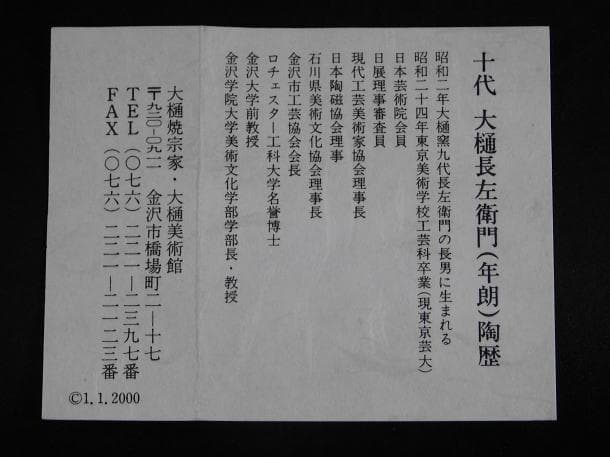 十代 大樋長左衛門(年朗)陶歴
昭和二年大樋窯九代長左衛門の長男に生まれる
昭和二十四年東京美術学校工芸科卒業(現東京芸大)
日本芸術院会員
日展理事審査員
現代工芸美術家協会理事長
日本陶磁協会理事
石川県美術文化協会理事長
金沢市工芸協会会長
ロチェスター工科大学名誉博士
金沢大学前教授
金沢学院大学美術文化学部学部長・教授
大樋焼宗家・大樋美術館
〒九二〇-〇九一一 金沢市橋場町二―十七
TEL(〇七六)二二一―二三九七番
FAX(〇七六)二二一―二一二三番
©1.1.2000